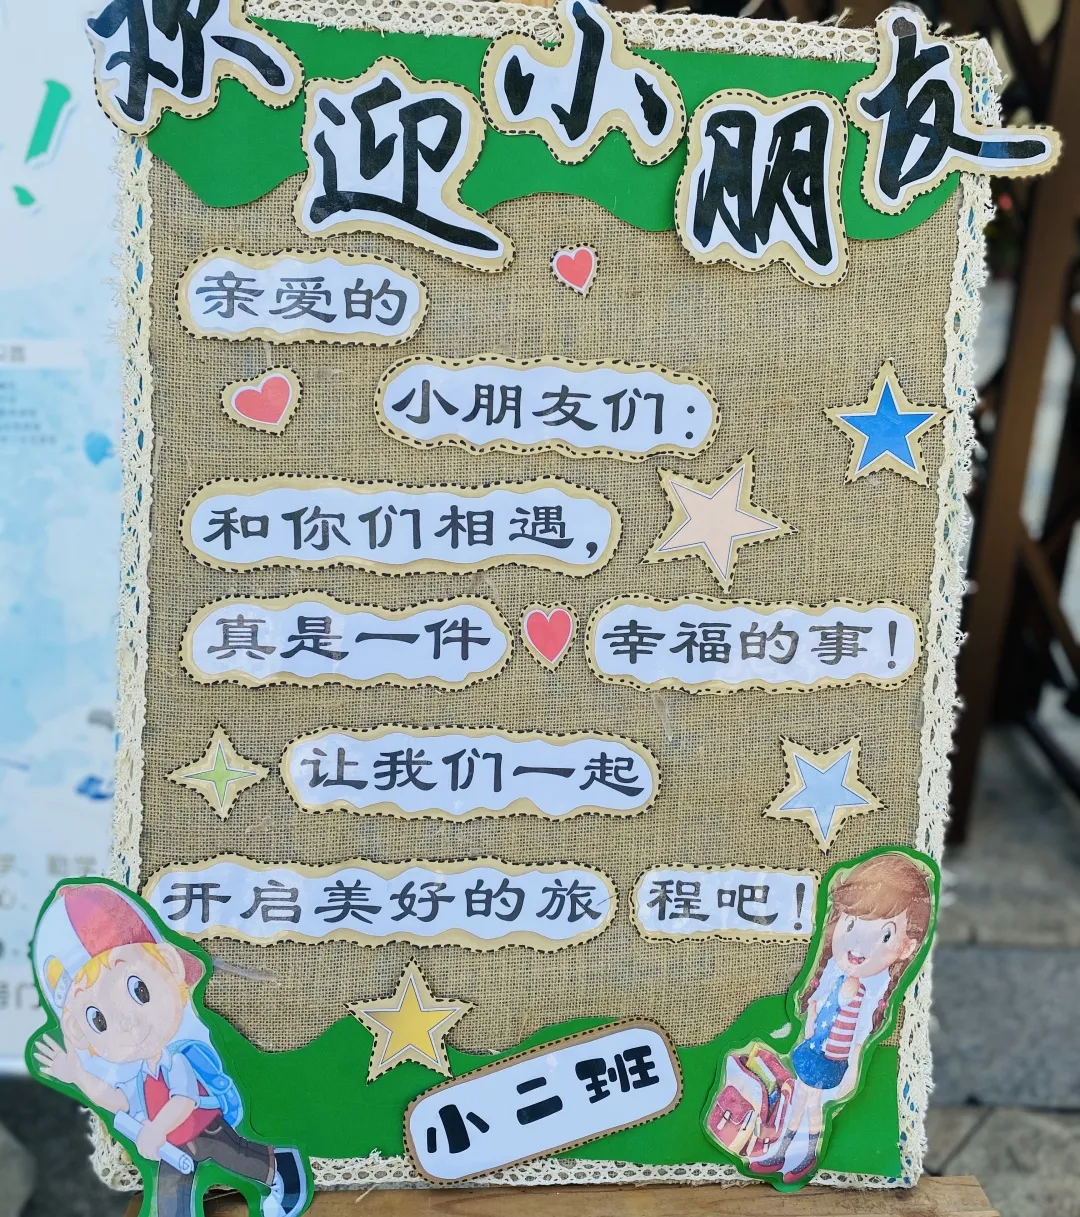 欢迎小朋友
亲爱的
小朋友们:
和你们相遇,
真是一件 幸福的事!
让我们一起
开启美好的旅 程吧!
小二班